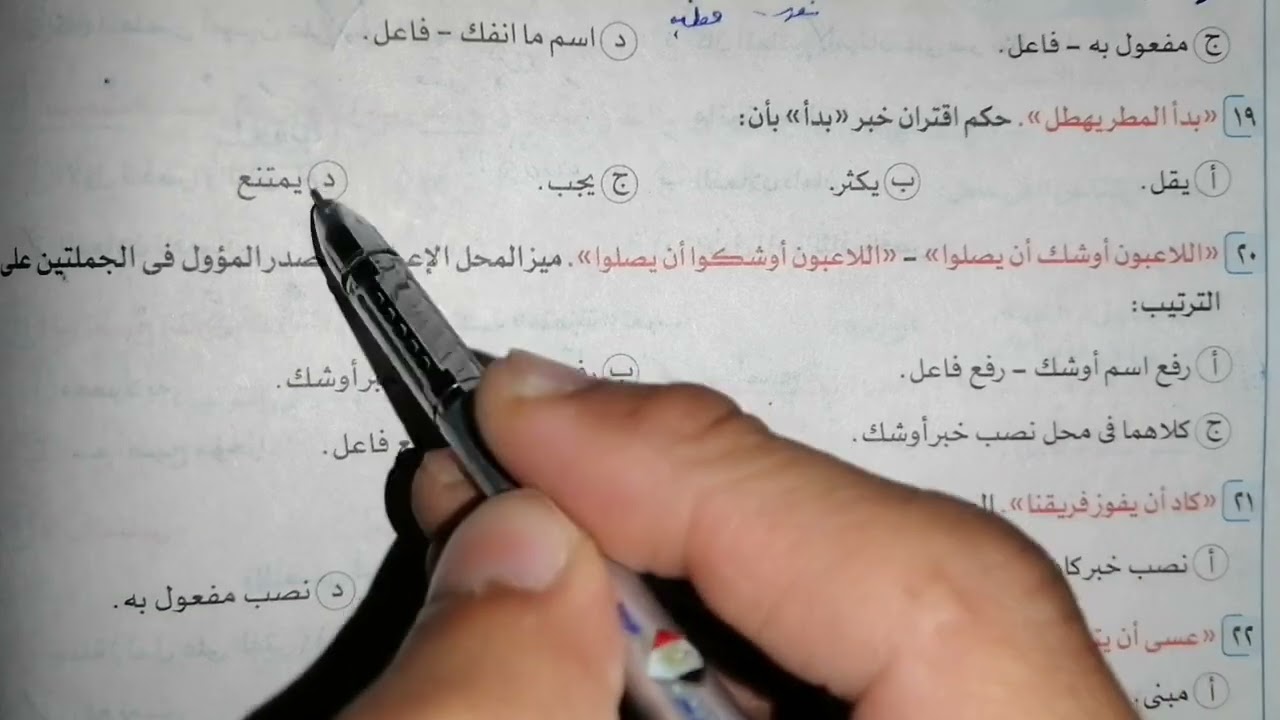 ج مفعول به – فاعل. د اسم ما انفك – فاعل.
١٩ «بدأ المطر يهطل». حكم اقتران خبر «بدأ» بأن:
أ يقل. ب يكثر. ج يجب. د يمتنع
٢٠ «اللاعبون أوشك أن يصلوا» – «اللاعبون أوشكوا أن يصلوا». ميز المحل المؤول فى الجملتين على
الترتيب:
أ رفع اسم أوشك – رفع فاعل. ب أوشك.
ج كلاهما فى محل نصب خبر أوشك. فاعل.
٢١ «كاد أن يفوز فريقنا».
أ نصب خبر كاد د نصب مفعول به.
٢٢ «عسى أن
أ مبنى.